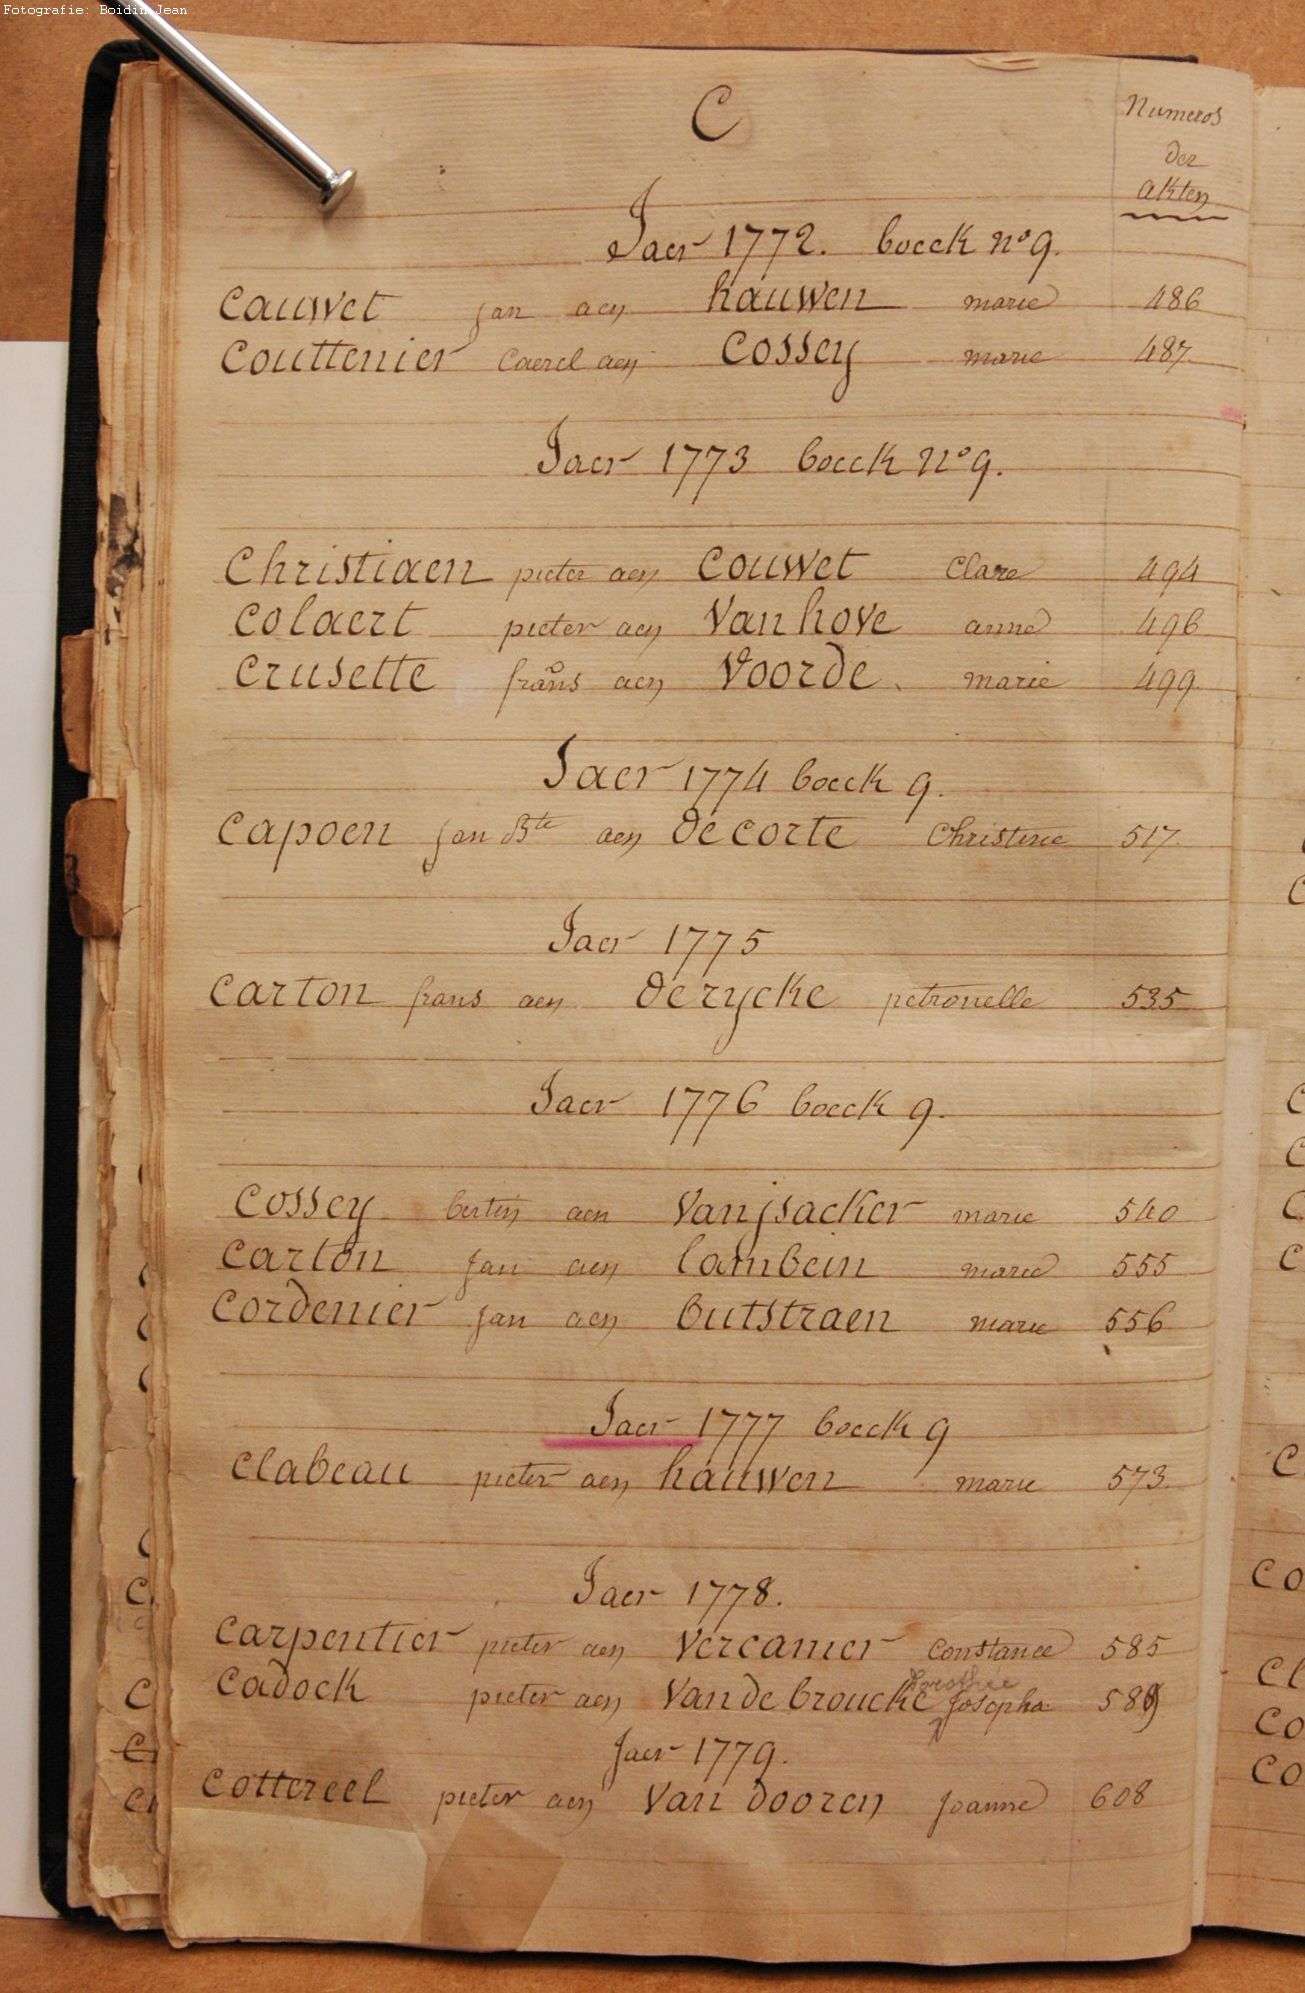 Fotografie: Boidin Jean
C
Numeros
der
akten
Jaer 1772. boeck nº 9.
Cauwet jan aen hauwen marie 486
Couttenier Caerel aen Cossey marie 487
Jaer 1773 boeck Nº 9.
Christiaen pieter aen Couwet Clare 494
Colaert pieter aen Vanhove anne 496
Crusette frans aen Voorde marie 499
Jaer 1774 boeck 9.
Capoen jan Bte aen decorte Christine 517
Jaer 1775
Carton frans aen derycke petronelle 535
Jaer 1776 boeck 9.
Cossey bertin aen Vanjsacker marie 540
Carton jan aen lambein marie 555
Cordenier jan aen butstraen marie 556
Jaer 1777 boeck 9
Clabeau pieter aen hauwen marie 573
Jaer 1778.
Carpentier pieter aen Vercamer Constance 585
dorothée
Cadock pieter aen Vandebroucke josepha 589
Jaer 1779.
Cottereel pieter aen Van dooren joanne 608